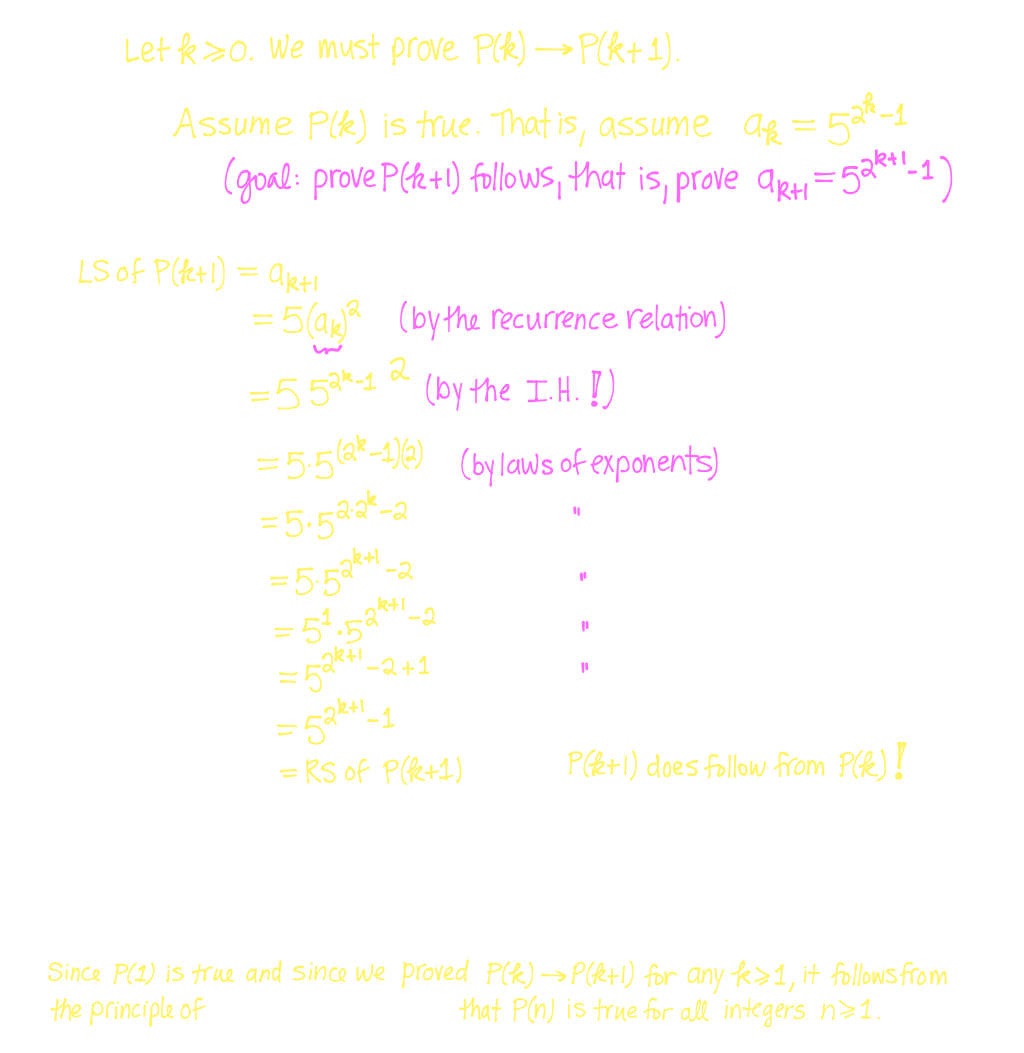 Let k ≥ 0. We must prove P(k) → P(k+1).
Assume P(k) is true. That is, assume a_k = 5^{2^k - 1}
(goal: prove P(k+1) follows, that is, prove a_{k+1} = 5^{2^{k+1} - 1})
LS of P(k+1) = a_{k+1}
= 5(a_k)^2 (by the recurrence relation)
= 5 5^{2^k - 1} 2 (by the I.H.!)
= 5·5^{(2^k - 1)(2)} (by laws of exponents)
= 5·5^{2·2^k - 2} "
= 5·5^{2^{k+1} - 2} "
= 5^1·5^{2^{k+1} - 2} "
= 5^{2^{k+1} - 2 + 1} "
= 5^{2^{k+1} - 1}
= RS of P(k+1) P(k+1) does follow from P(k)!
Since P(1) is true and since we proved P(k) → P(k+1) for any k ≥ 1, it follows from
the principle of that P(n) is true for all integers n ≥ 1.